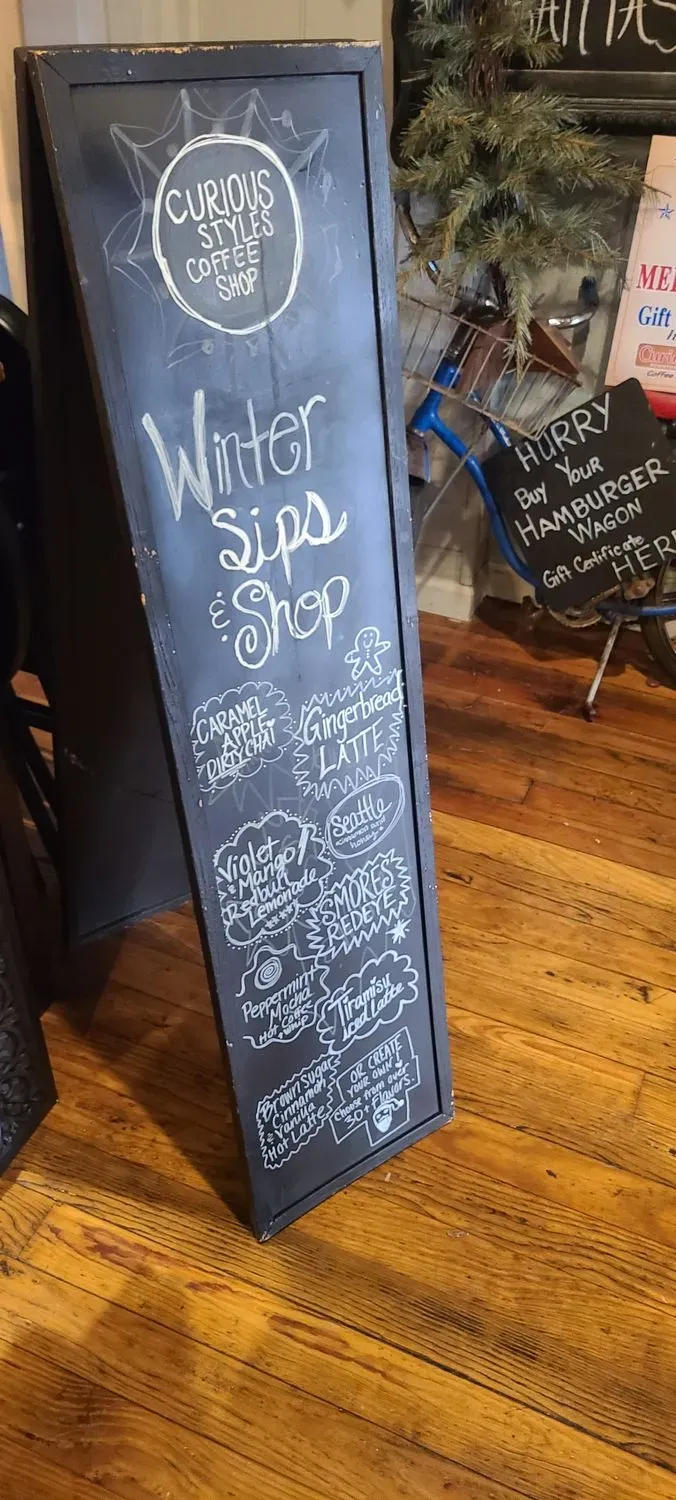 CURIOUS
STYLES
COFFEE
SHOP
Winter
Sips
& Shop
CARAMEL
APPLE
DIRTY CHAI
Gingerbread
LATTE
Seattle
cinnamon and
honey
Violet
& Mango
Redbull
Lemonade
SMORES
REDEYE
Peppermint
Mocha
Hot Coffee
Tiramisu
Iced Latte
Brown Sugar
Cinnamon
& Vanilla
Hot Latte
OR CREATE
YOUR OWN
Choose from over
30+ Flavors.
HURRY
Buy Your
HAMBURGER
WAGON
Gift Certificate
HERE
Gift
Coffee